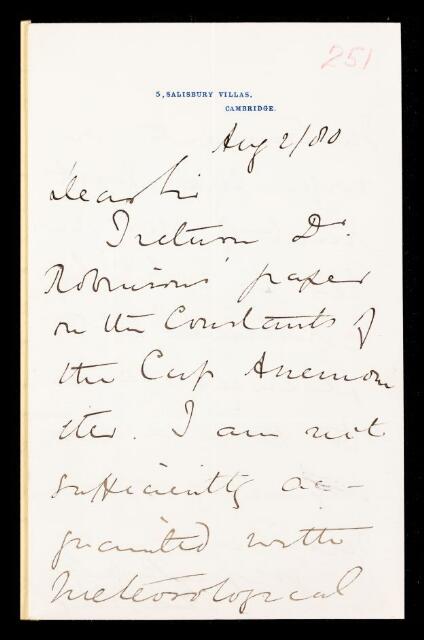 251
5, SALISBURY VILLAS,
CAMBRIDGE.
Aug 2/80
Dear Sir
I return Dr.
Robinsons paper
on the Constants of
the Cup Anemom
eter. I am not
sufficiently ac-
quainted with
Meteorological